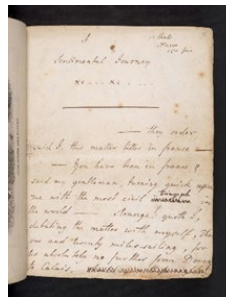 A
Sentimental Journey
— they order
said I, this matter better in france —
— You have been in france?
said my gentleman, turning quick upon
me with the most civil triumph in
the world — Strange! quoth I,
debating the matter with myself, That
one and twenty miles sailing, for
tis absolutely no further from Dover
to Calais,